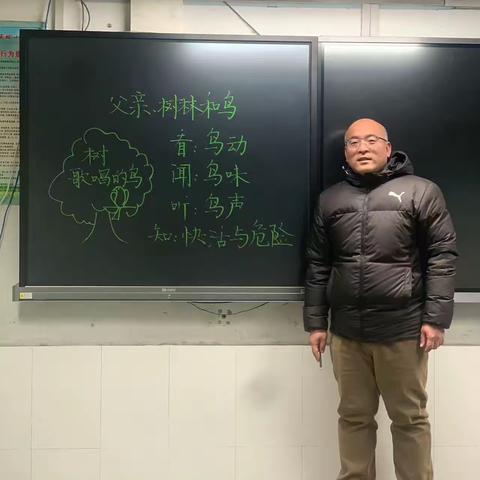 父亲、树林和鸟
看:鸟动
闻:鸟味
听:鸟声
知:快活与危险
树
歌唱的鸟